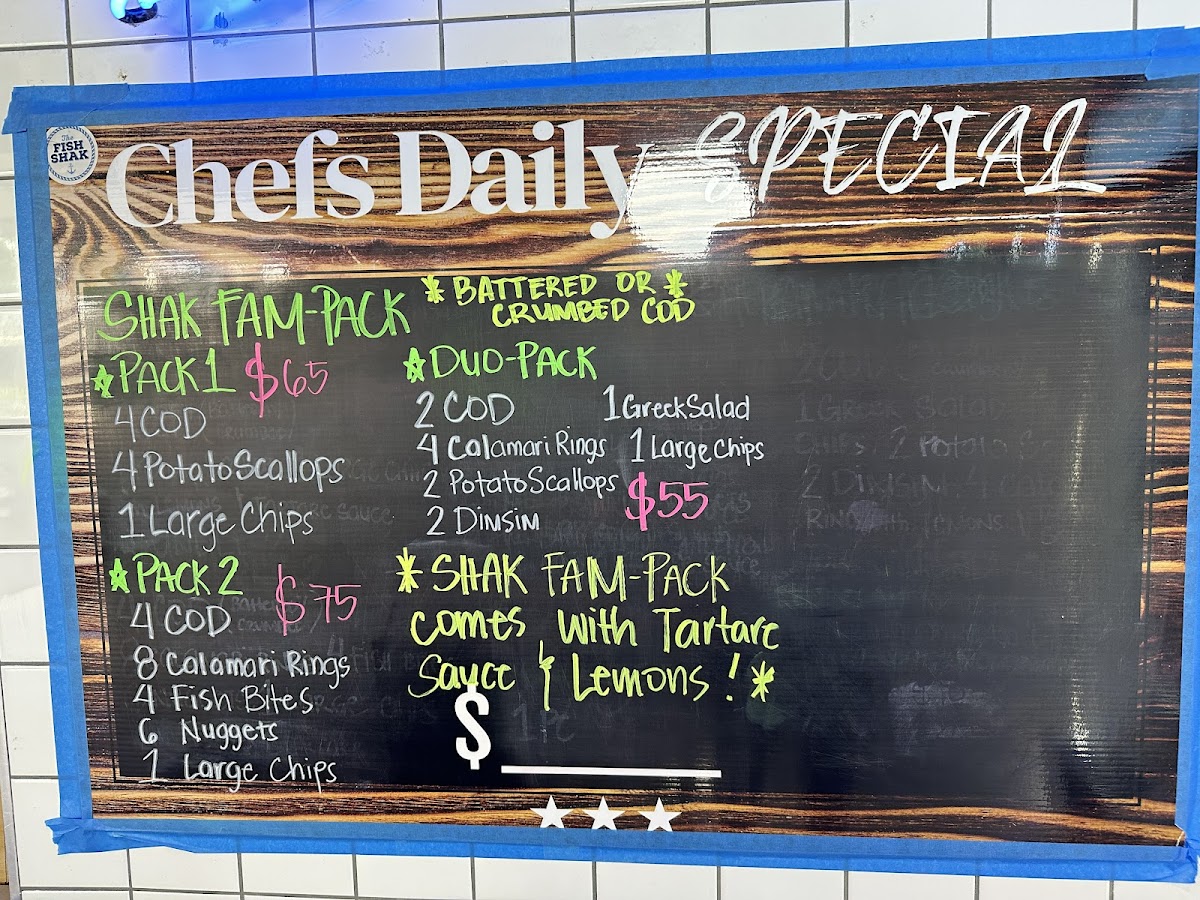 The
FISH
SHAK
Chefs Daily SPECIAL
SHAK FAM-PACK
* BATTERED OR *
CRUMBED COD
*PACK 1 $65
4 COD
4 Potato Scallops
1 Large Chips
*PACK 2 $75
4 COD
8 Calamari Rings
4 Fish Bites
6 Nuggets
1 Large Chips
*DUO-PACK
2 COD 1 Greek Salad
4 Calamari Rings 1 Large Chips
2 Potato Scallops
2 DIMSIM
$55
* SHAK FAM-PACK
comes with Tartare
Sauce & Lemons! *
$